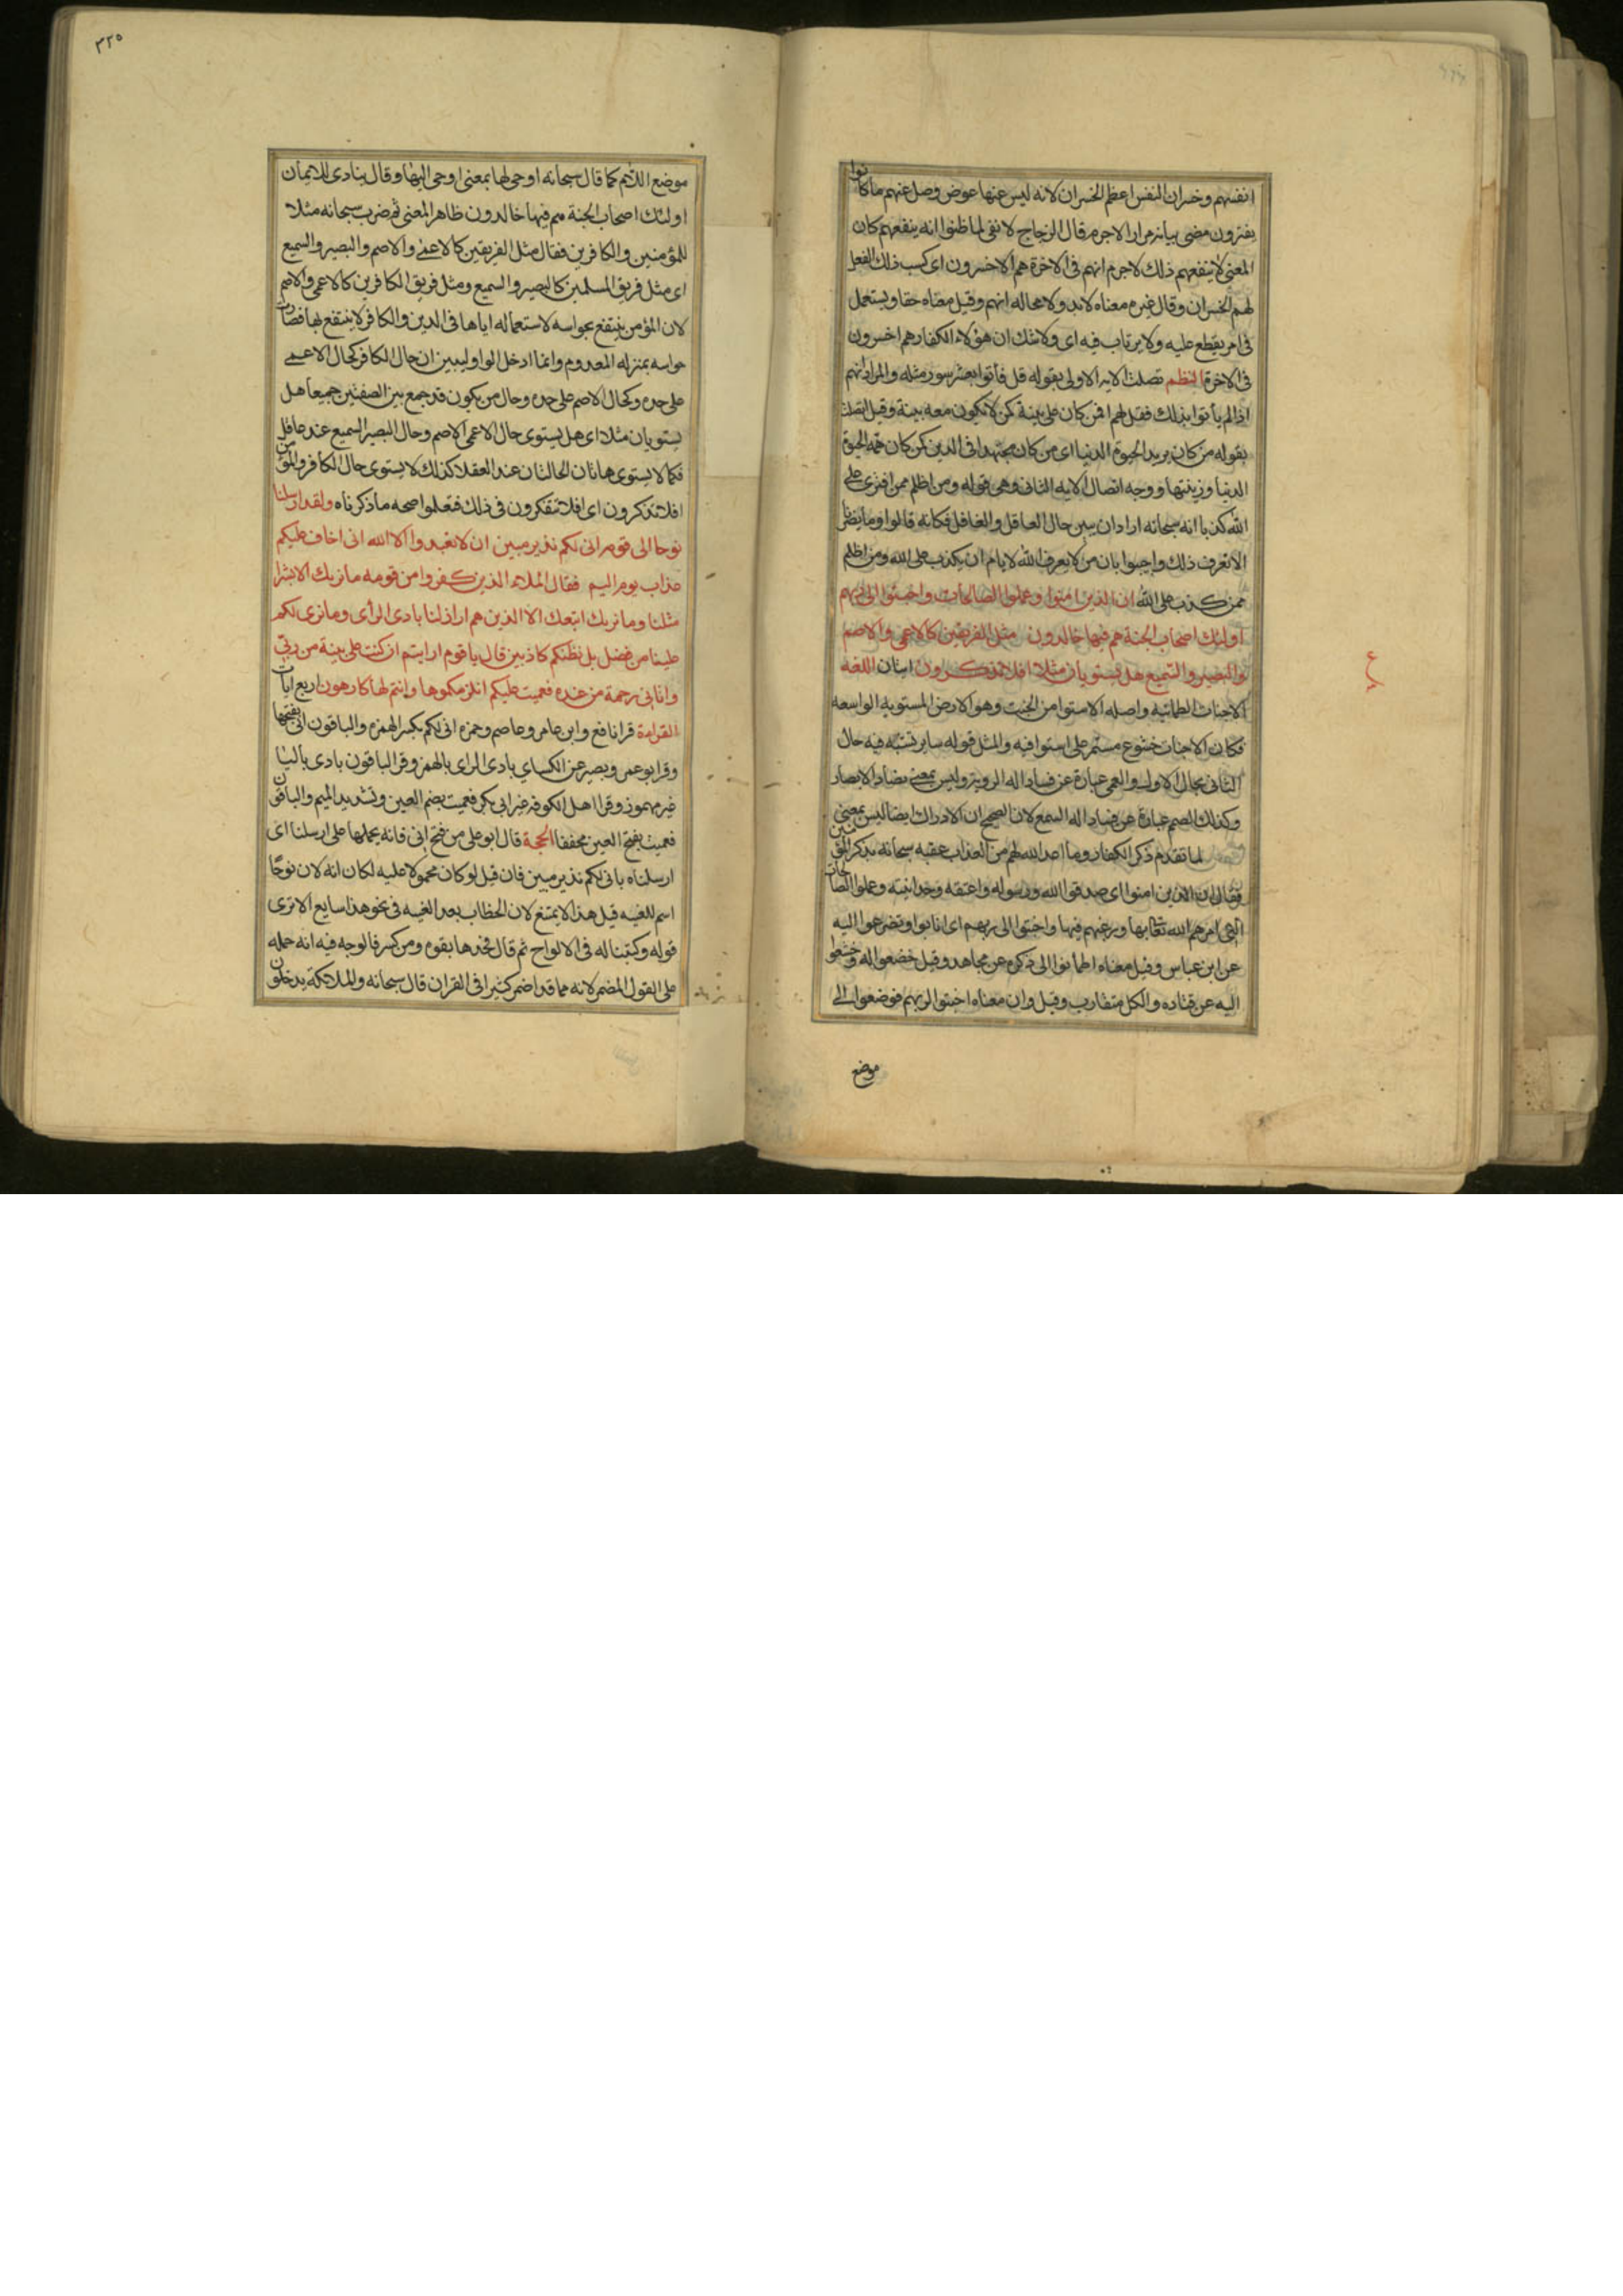 انفسهم وخسران النفس اعظم الخسران لانه ليس عنها عوض وضل عنهم ما كانوا
يفترون مضى بيانه مرارا لاجرم قال الزجاج لا نفى لما ظنوا انه ينفعهم كان
المعنى لا ينفعهم ذلك لاجرم انهم فى الاخرة هم الاخسرون اى كسب ذلك الفعل
لهم الخسران وقال غيره معناه لابد ولا محاله انهم وقيل معناه حقا ويستعمل
فى امر يقطع عليه ولا يرتاب فيه اى ولا شك ان هؤلاء الكفار هم اخسرون
فى الاخرة النظم تصلت الايه الاولى بقوله قل فأتوا بعشر سور مثله والمراد انهم
اذا لم يأتوا بذلك فقل لهم افمن كان على بينة كمن لا تكون معه بينة وقيل اتصلت
بقوله من كان يريد الحيوة الدنيا اى من كان مجتهدا فى الدين كمن كان همه الحيوة
الدنيا وزينتها ووجه اتصال الايه الثانى وهى قوله ومن اظلم ممن افترى على
الله كذبا انه سبحانه اراد ان يبين حال العاقل والغافل فكانه قالوا وما يضرنا
الا نعرف ذلك واجيبوا بان من لا يعرف الله لا يامن ان يكذب على الله ومن اظلم
ممن كذب على الله ان الذين امنوا وعملوا الصالحات واخبتوا الى ربهم
اولئك اصحاب الجنة هم فيها خالدون مثل الفريقين كالاعمى والاصم
والبصير والسميع هل يستويان مثلا افلا تذكرون ايتان اللغه
الاخبات الطمانيه واصله الاستوا من الخبت وهو الارض المستويه الواسعه
فكان الاخبات خشوع مستمر على استوا فيه والمثل قوله ساير تشبه فيه حال
الثانى بحال الاول والعمى عبارة عن فساد اله الرويه وليس بمعنى يضاد الابصار
وكذلك الصمم عبارة عن فساد اله السمع لان الصحيح ان الادراك ايضا ليس بمعنى
لما تقدم ذكر الكفار وما اعد الله لهم من العذاب عقبه سبحانه بذكر المؤمنين
فقال ان الذين امنوا اى صدقوا الله ورسوله واعتقدوا وحدانيته وعملوا الصالحات
التى امرهم الله تعالى بها ورغبهم فيها واخبتوا الى ربهم اى انابوا وتضرعوا اليه
عن ابن عباس وقيل معناه اطمأنوا الى ذكره عن مجاهد وقيل خضعوا له وخشعوا
اليه عن قتاده والكل متقارب وقيل وان معناه اخبتوا لربهم فوضعوا الى
موضع
٣٢٥
موضع اللام كما قال سبحانه اوحى لها بمعنى اوحى اليها وقال ينادى للايمان
اولئك اصحاب الجنة هم فيها خالدون ظاهر المعنى ثم ضرب سبحانه مثلا
للمؤمنين والكافرين فقال مثل الفريقين كالاعمى والاصم والبصير والسميع
اى مثل فريق المسلمين كالبصير والسميع ومثل فريق الكافرين كالاعمى والاصم
لان المؤمن ينتفع بحواسه لاستعماله اياها فى الدين والكافر لا ينتفع بها فصارت
حواسه بمنزله المعدوم وانما ادخل الواو ليبين ان حال الكافر كحال الاعمى
على حده وكحال الاصم على حده وحال من يكون قد جمع بين الصفتين جميعا هل
يستويان مثلا اى هل يستوى حال الاعمى الاصم وحال البصير السميع عند عاقل
فكما لا يستوى هاتان الحالتان عند العقلا كذلك لا يستوى حال الكافر والمؤمن
افلا تذكرون اى افلا تتفكرون فى ذلك فتعلموا صحه ما ذكرناه ولقد ارسلنا
نوحا الى قومه انى لكم نذير مبين ان لا تعبدوا الا الله انى اخاف عليكم
عذاب يوم اليم فقال الملاء الذين كفروا من قومه ما نريك الا بشرا
مثلنا وما نريك اتبعك الا الذين هم اراذلنا بادى الرأى وما نرى لكم
علينا من فضل بل نظنكم كاذبين قال يا قوم ارايتم ان كنت على بينة من ربى
واتانى رحمة من عنده فعميت عليكم انلزمكموها وانتم لها كارهون اربع ايات
القراءة قرا نافع وابن عامر وعاصم وحمزه انى لكم بكسر الهمزه والباقون انى بفتحها
وقرا بو عمر ونصير عن الكساي بادى الراى بالهمز وقرا الباقون بادى باليا
غير مهموز وقرا اهل الكوفه غير ابى بكر فعميت بضم العين وتشديد الميم والباقون
فعميت بفتح العين مخففا الحجة قال ابو على من فتح انى فانه يحملها على ارسلنا اى
ارسلناه بانى لكم نذير مبين فان قيل لو كان محمولا عليه لكان انه لان نوحًا
اسم للغيبه قيل هذا لا يمتنع لان الخطاب بعد الغيبه فى نحو هذا سايغ الا ترى
قوله وكتبنا له فى الالواح ثم قال فخذها بقوه ومن كسر فالوجه فيه انه حمله
على القول المضمر لانه مما قد اضمر كثيرا فى القران قال سبحانه والملائكة يدخلون